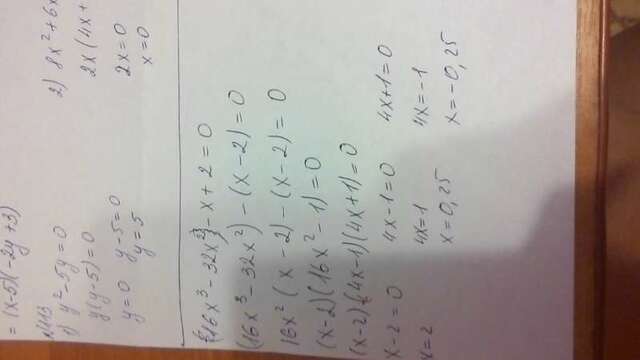 = (x-5)(-2y+3)
№113
1) y² - 5y = 0
y(y-5) = 0
y = 0 y-5 = 0
y = 5
2) 8x² + 6x
2x(4x +
2x = 0
x = 0
(16x³ - 32x²) - x + 2 = 0
(16x³ - 32x²) - (x - 2) = 0
16x² (x - 2) - (x - 2) = 0
(x-2)(16x² - 1) = 0
(x-2)(4x-1)(4x+1) = 0
x-2 = 0 4x-1 = 0 4x+1 = 0
x = 2 4x = 1 4x = -1
x = 0,25 x = -0,25